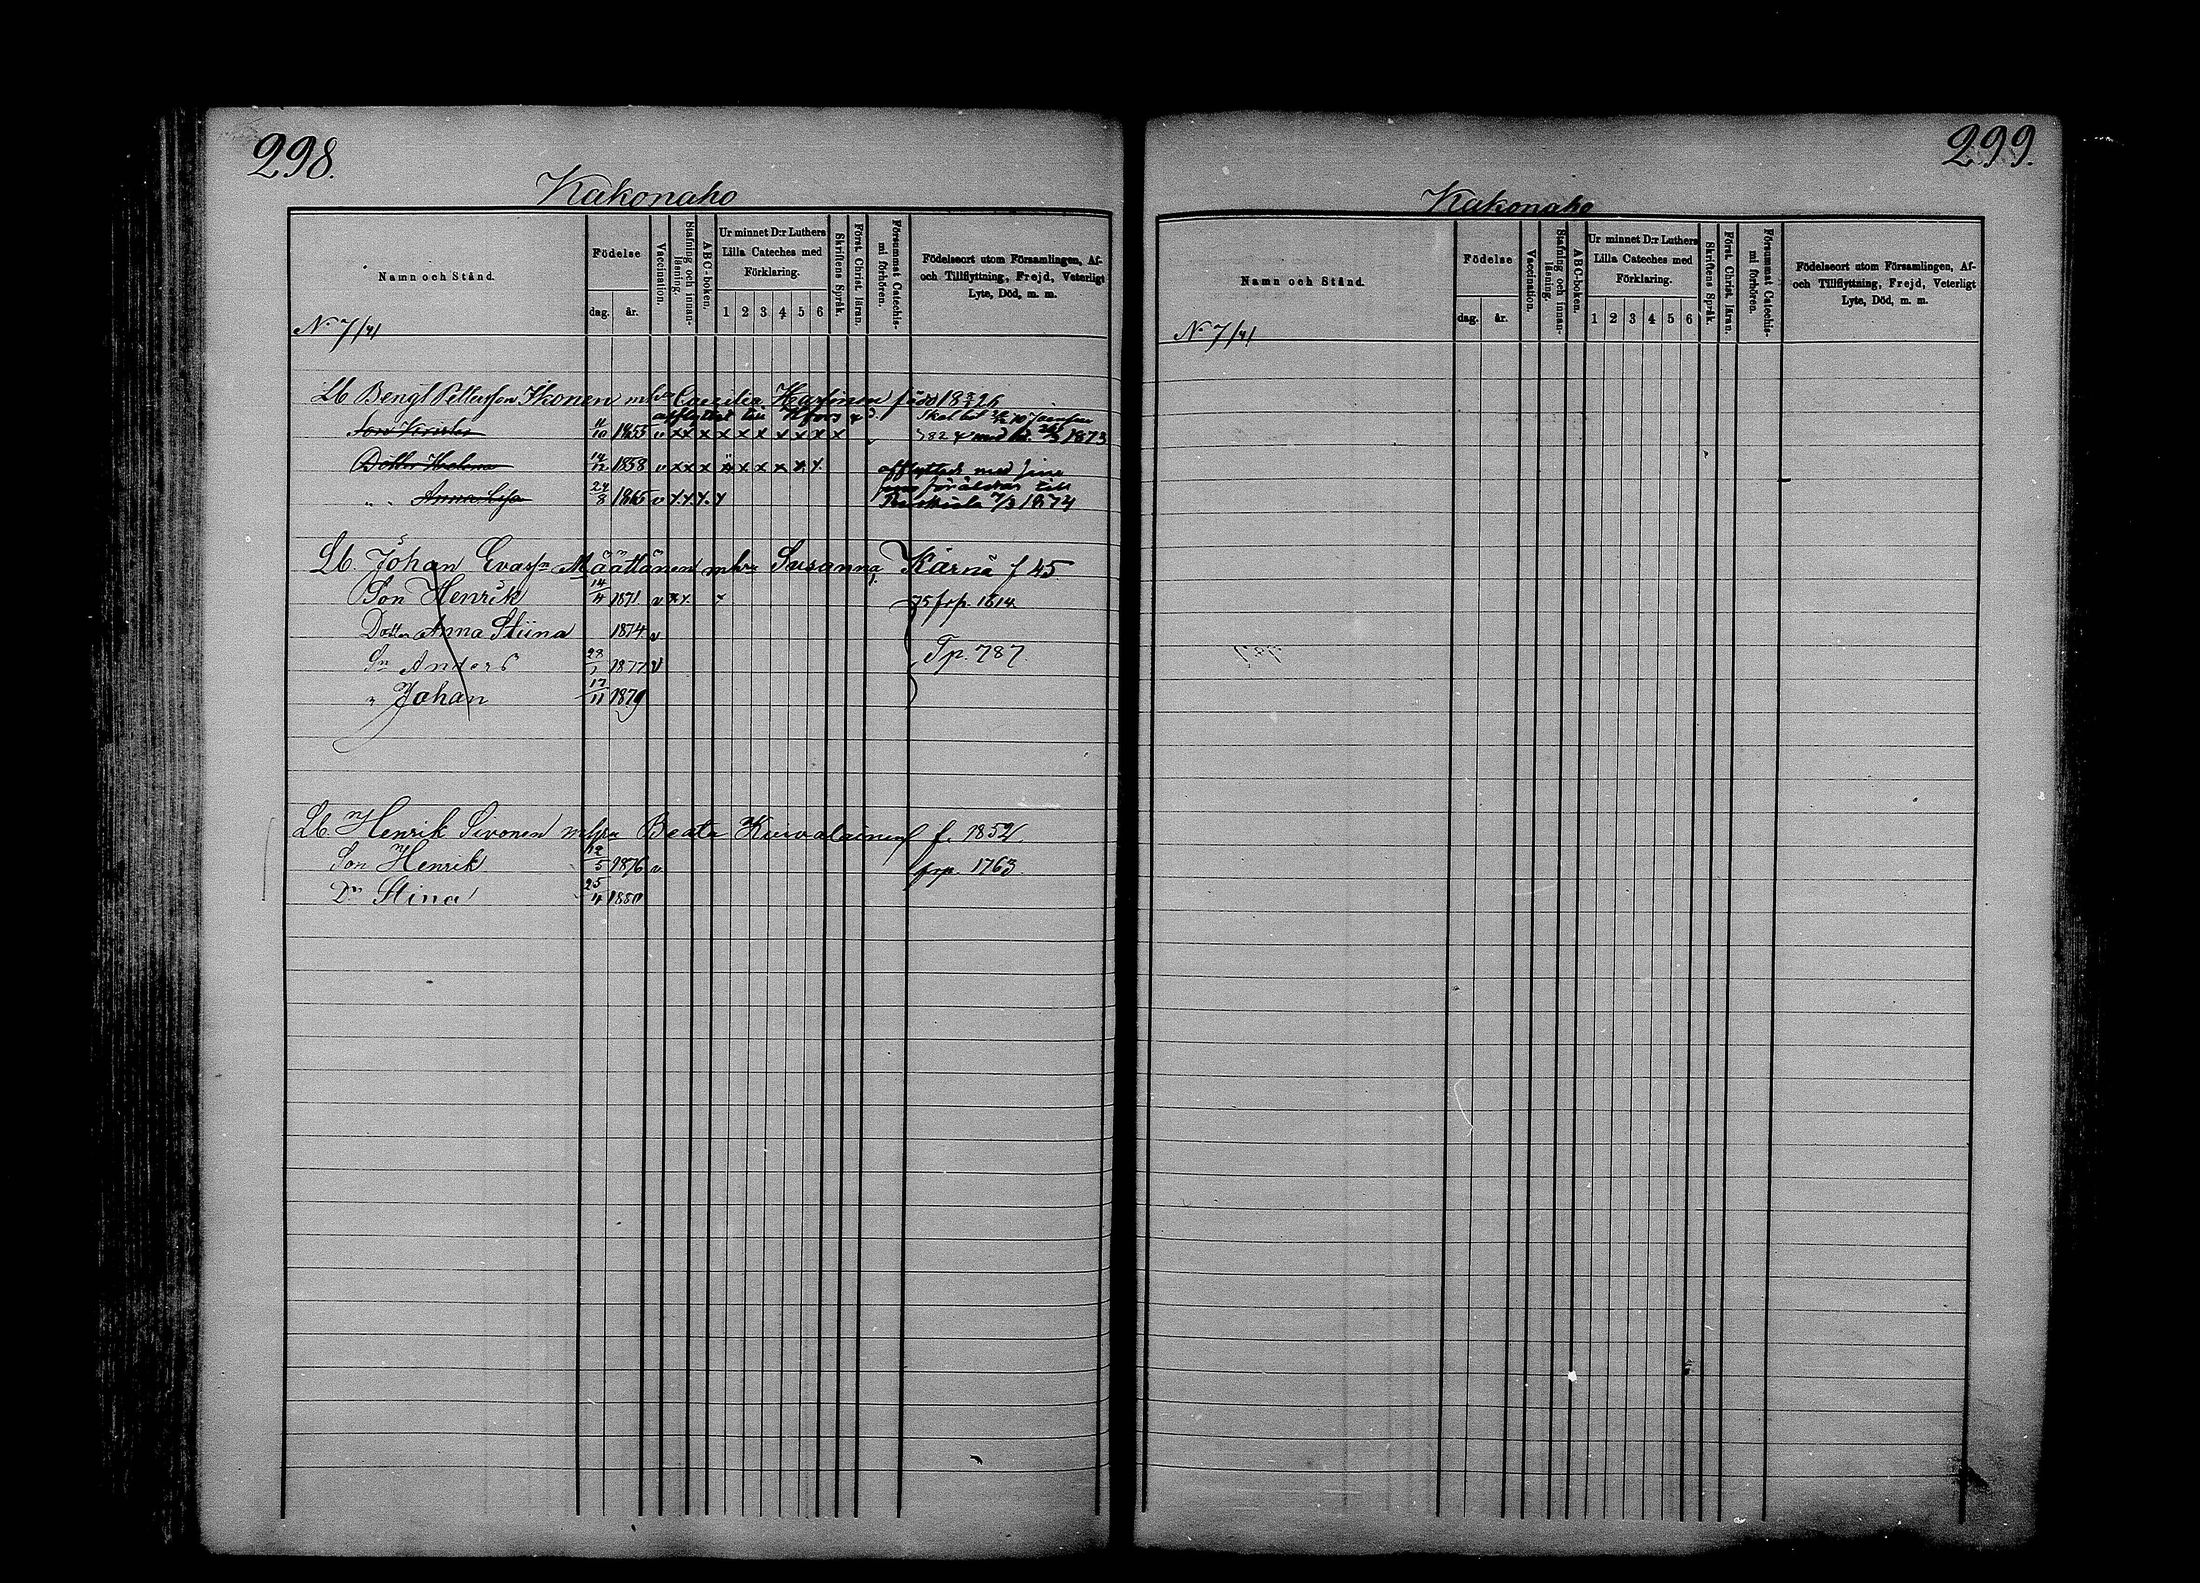 298.
Kakonaho
Namn och Stånd.
Födelse
dag.
år.
Vaccination.
Stafning och innanläsning.
ABC-boken.
Ur minnet D:r Luthers
Lilla Cateches med
Förklaring.
1 2 3 4 5 6
Skriftens Språk.
Först. Christ. läran.
Försummat Catechismi förhören.
Födelseort utom Församlingen, Af-
och Tillflyttning, Frejd, Veterligt
Lyte, Död, m. m.
No 7/41
Lb Bengt Pettersson Ikonen m hu Caecilia född 18 26
afflyttat till
Son 11/10 1855 v x x x x x x x x x x 1873
Dotter Helena 14/12 1858 v x x x x x x x x x afflyttade med sine
föräldrar till
" " Anna Lisa 24/8 1865 v x x x x 7/3 1874
Lb. Johan Evasson Määttänen m hu Susanna Kärnä f 45
Son Henrik 14/4 1871 v x x x 75 frp. 1614
Dotter Anna Stiina 1874 v
Sn Anders 28/1 1877 v Tp. 787.
" Johan 17/11 1879
Lb. Henrik Sivonen m hu Beata Kuivalainen f. 1852
Son Henrik 5 1876 v frp. 1763
Dr Stina 25/4 1880
299.
Kakonaho
Namn och Stånd.
Födelse
dag.
år.
Vaccination.
Stafning och innanläsning.
ABC-boken.
Ur minnet D:r Luthers
Lilla Cateches med
Förklaring.
1 2 3 4 5 6
Skriftens Språk.
Först. Christ. läran.
Försummat Catechismi förhören.
Födelseort utom Församlingen, Af-
och Tillflyttning, Frejd, Veterligt
Lyte, Död, m. m.
No 7/41